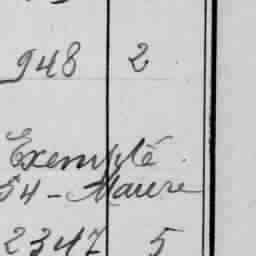 948 2
Exempté
54 - Maure
2347 5